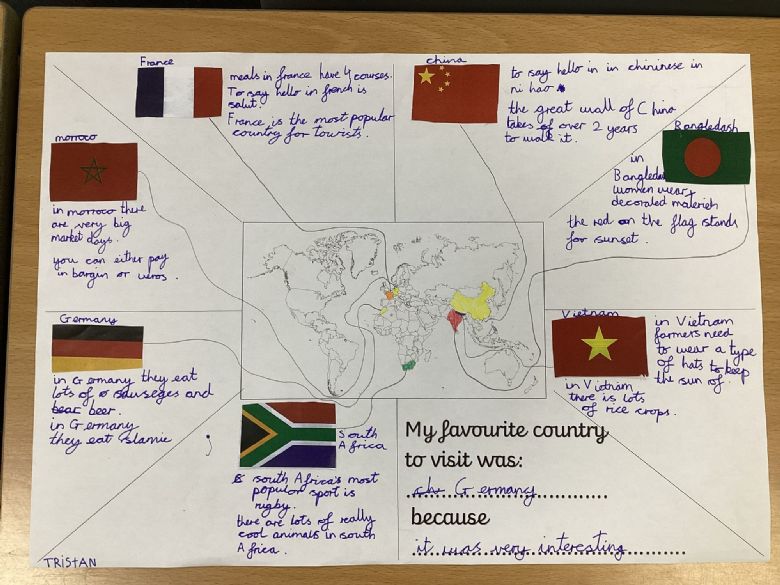 France
meals in france have 4 courses.
To say hello in french is
salut.
France is the most popular
country for tourists.
china
to say hello in in chininese in
ni hao
the great wall of China
takes of over 2 years
to walk it.
Bangledash
in
Bangledas
women wear
decorated materieh
the red on the flag stands
for sunset.
morroco
in morroco there
are very big
market days.
you can either pay
in bargin or uros.
Germany
in Germany they eat
lots of sauseges and
bear beer.
in Germany
they eat slamie
South
Africa
south Africa's most
popular sport is
rugby.
there are lots of really
cool animals in south
Africa.
Vietnam
in Vietnam
farmers need
to wear a type
of hats to keep
the sun of.
in Vietnam
there is lots
of rice crops.
My favourite country
to visit was:
Germany
because
it was very interesting
TRISTAN